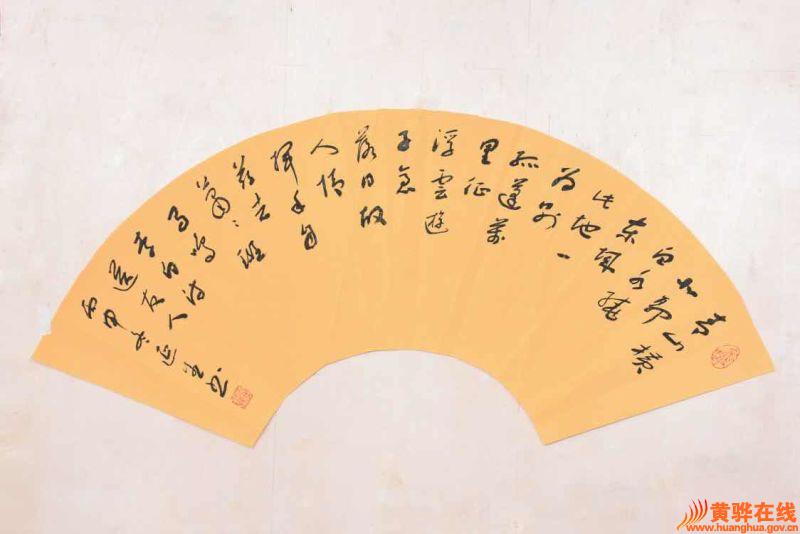 青山横
北郭
白水绕
东城
此地一
为别
孤蓬萬
里征
浮雲遊
子意
落日故
人情
挥手自
兹去
萧〻班
马鸣
李白诗
送友人
丙申 书
黄骅在线
www.huanghua.gov.cn